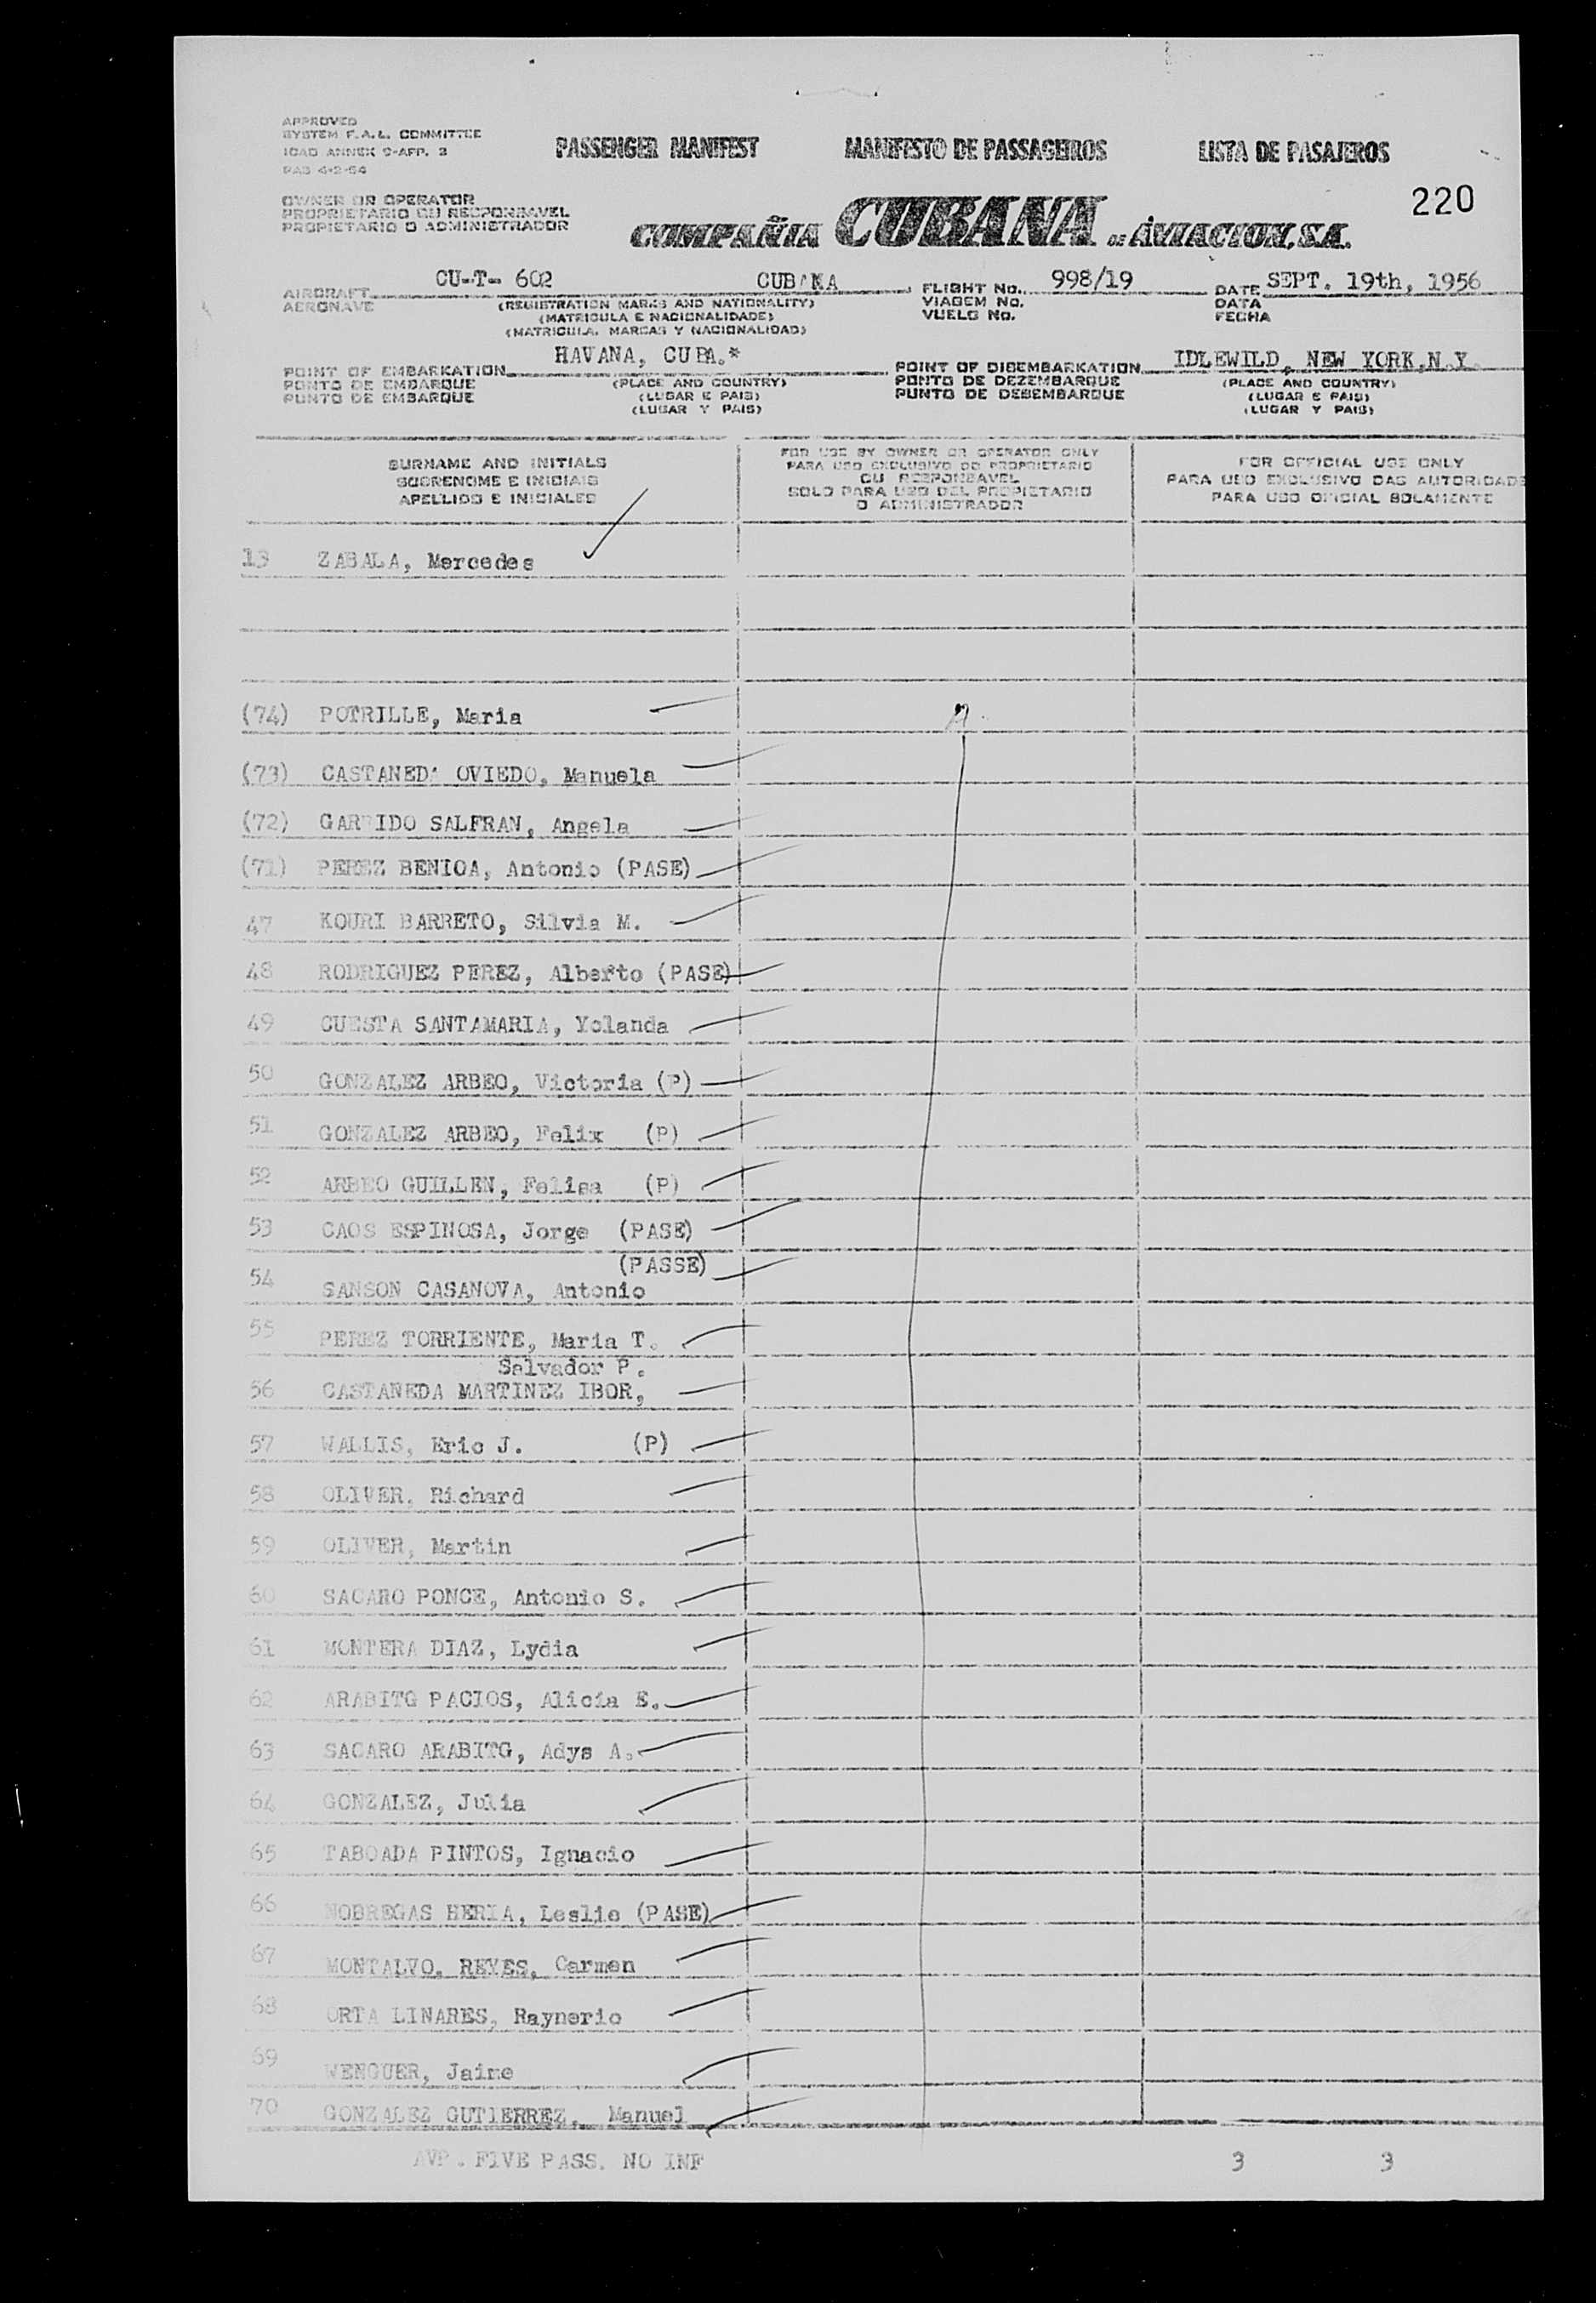 APPROVED
SYSTEM F.A.L. COMMITTEE
ICAO ANNEX 9-APP. 3
PAS 4-2-54
PASSENGER MANIFEST
MANIFESTO DE PASSAGEIROS
LISTA DE PASAJEROS
220
OWNER OR OPERATOR
PROPRIETARIO OU RESPONSAVEL
PROPIETARIO O ADMINISTRADOR
COMPAÑIA CUBANA DE AVIACION, S.A.
AIRCRAFT CU-T- 602 CUBANA FLIGHT No. 998/19 DATE SEPT. 19th, 1956
AERONAVE (REGISTRATION MARKS AND NATIONALITY) VIAGEM No. DATA
(MATRICULA E NACIONALIDADE) VUELO No. FECHA
(MATRICULA, MARCAS Y NACIONALIDAD)
POINT OF EMBARKATION HAVANA, CUBA.* POINT OF DISEMBARKATION IDLEWILD, NEW YORK,N.Y.
PONTO DE EMBARQUE (PLACE AND COUNTRY) PONTO DE DEZEMBARQUE (PLACE AND COUNTRY)
PUNTO DE EMBARQUE (LUGAR E PAIS) PUNTO DE DESEMBARQUE (LUGAR E PAIS)
(LUGAR Y PAIS) (LUGAR Y PAIS)
SURNAME AND INITIALS
SOBRENOME E INICIAIS
APELLIDS E INICIALES
FOR USE BY OWNER OR OPERATOR ONLY
PARA USO EXCLUSIVO DO PROPRIETARIO
OU RESPONSAVEL
SOLO PARA USO DEL PROPIETARIO
O ADMINISTRADOR
FOR OFFICIAL USE ONLY
PARA USO EXCLUSIVO DAS AUTORIDADE
PARA USO OFICIAL SOLAMENTE
13 ZABALA, Mercedes
(74) POTRILLE, Maria
(73) CASTANEDA OVIEDO, Manuela
(72) GARRIDO SALFRAN, Angela
(71) PEREZ BENIOA, Antonio (PASE)
47 KOURI BARRETO, Silvia M.
48 RODRIGUEZ PEREZ, Alberto (PASE)
49 CUESTA SANTAMARIA, Yolanda
50 GONZALEZ ARBEO, Victoria (P)
51 GONZALEZ ARBEO, Felix (P)
52 ARBEO GUILLEN, Felisa (P)
53 CAOS ESPINOSA, Jorge (PASE)
(PASSE)
54 SANSON CASANOVA, Antonio
55 PEREZ TORRIENTE, Maria T.
Salvador P.
56 CASTANEDA MARTINEZ IBOR,
57 WALLIS, Eric J. (P)
58 OLIVER, Richard
59 OLIVER, Martin
60 SACARO PONCE, Antonio S.
61 MONTERA DIAZ, Lydia
62 ARABITG PACIOS, Alicia E.
63 SACARO ARABITG, Adys A.
64 GONZALEZ, Julia
65 TABOADA PINTOS, Ignacio
66 NOBREGAS HERIA, Leslie (PASE)
67 MONTALVO, REYES, Carmen
68 ORTA LINARES, Raynerio
69 WENGUER, Jaime
70 GONZALEZ GUTIERREZ, Manuel
AVP. FIVE PASS. NO INF 3 3